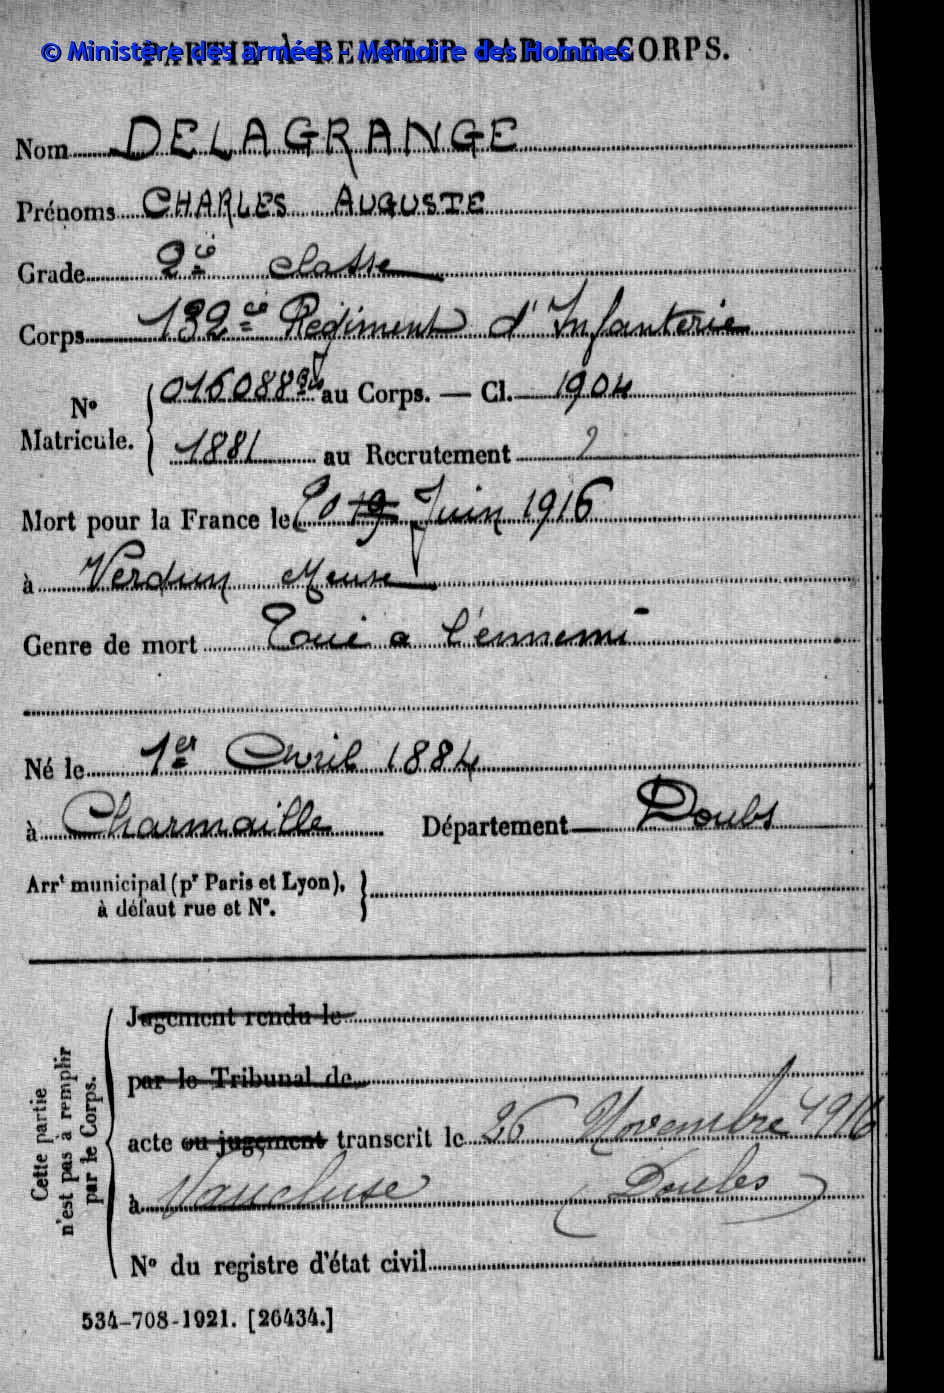 PARTIE À REMPLIR PAR LE CORPS.
© Ministère des armées - Mémoire des Hommes
Nom DELAGRANGE
Prénoms CHARLES AUGUSTE
Grade 2e classe
Corps 132e Régiment d'Infanterie
No Matricule. 016088 au Corps. — Cl. 1904
1881 au Recrutement
Mort pour la France le 20 19 Juin 1916
à Verdun Meuse
Genre de mort Tué a l'ennemi
Né le 1er Avril 1884
à Charmoille Département Doubs
Arrt municipal (pr Paris et Lyon),
à défaut rue et No.
Cette partie n'est pas à remplir par le Corps.
Jugement rendu le
par le Tribunal de
acte ou jugement transcrit le 26 Novembre 1916
à Vaucluse (Doubs)
No du registre d'état civil
534-708-1921. [26434.]